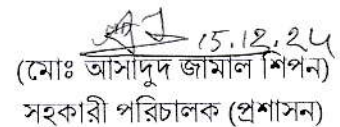 15.12.24
(মোঃ আসাদুদ জামাল শিপন)
সহকারী পরিচালক (প্রশাসন)